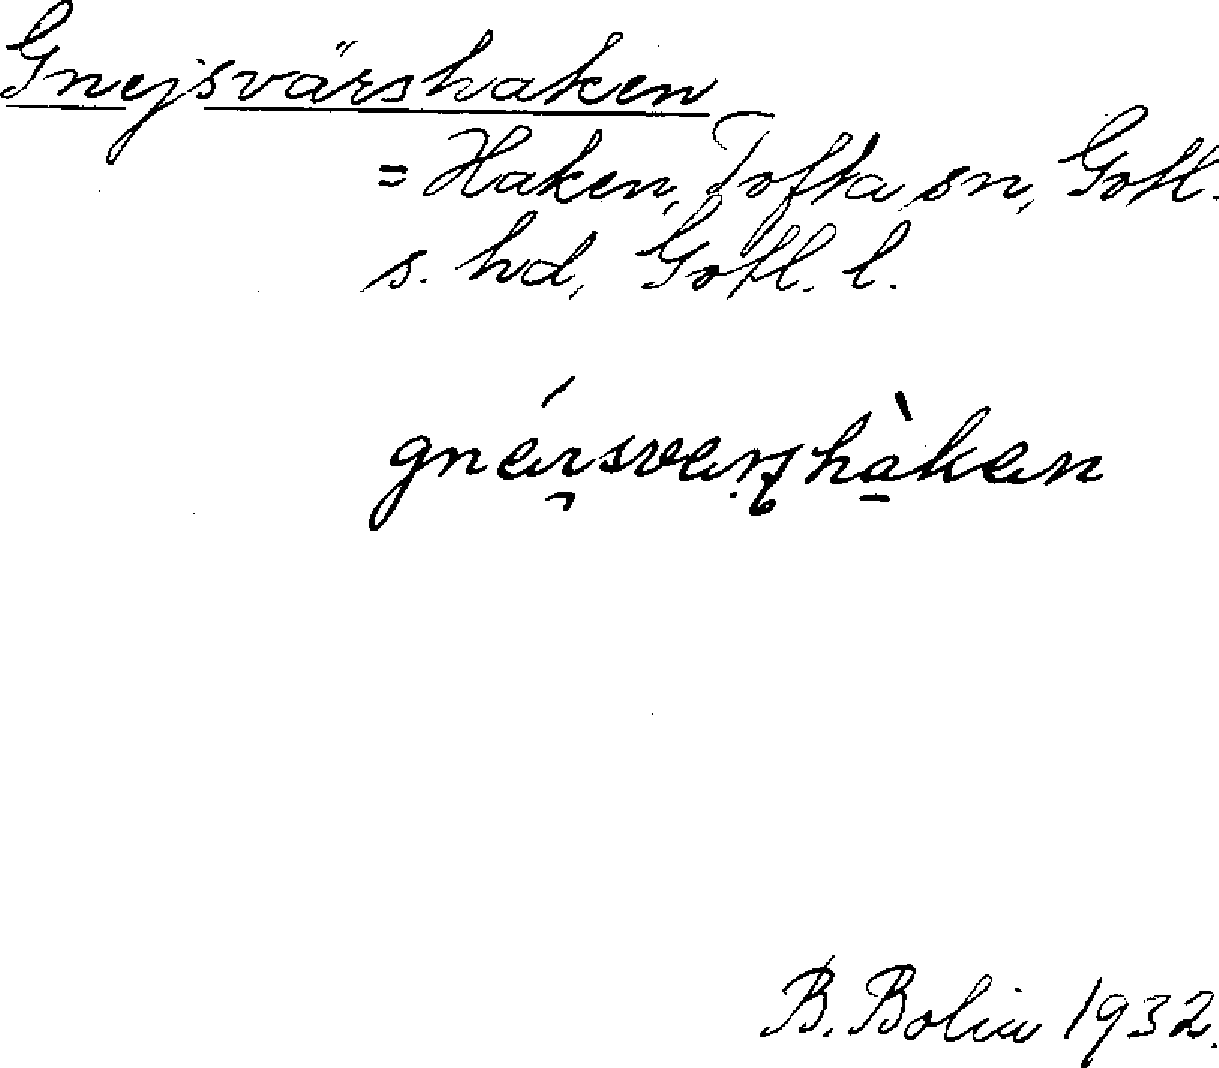 Gnejsvärshaken
= Haken, Tofta sn, Gotl.
s. hd, Gotl. l.
B. Bolin 1932.